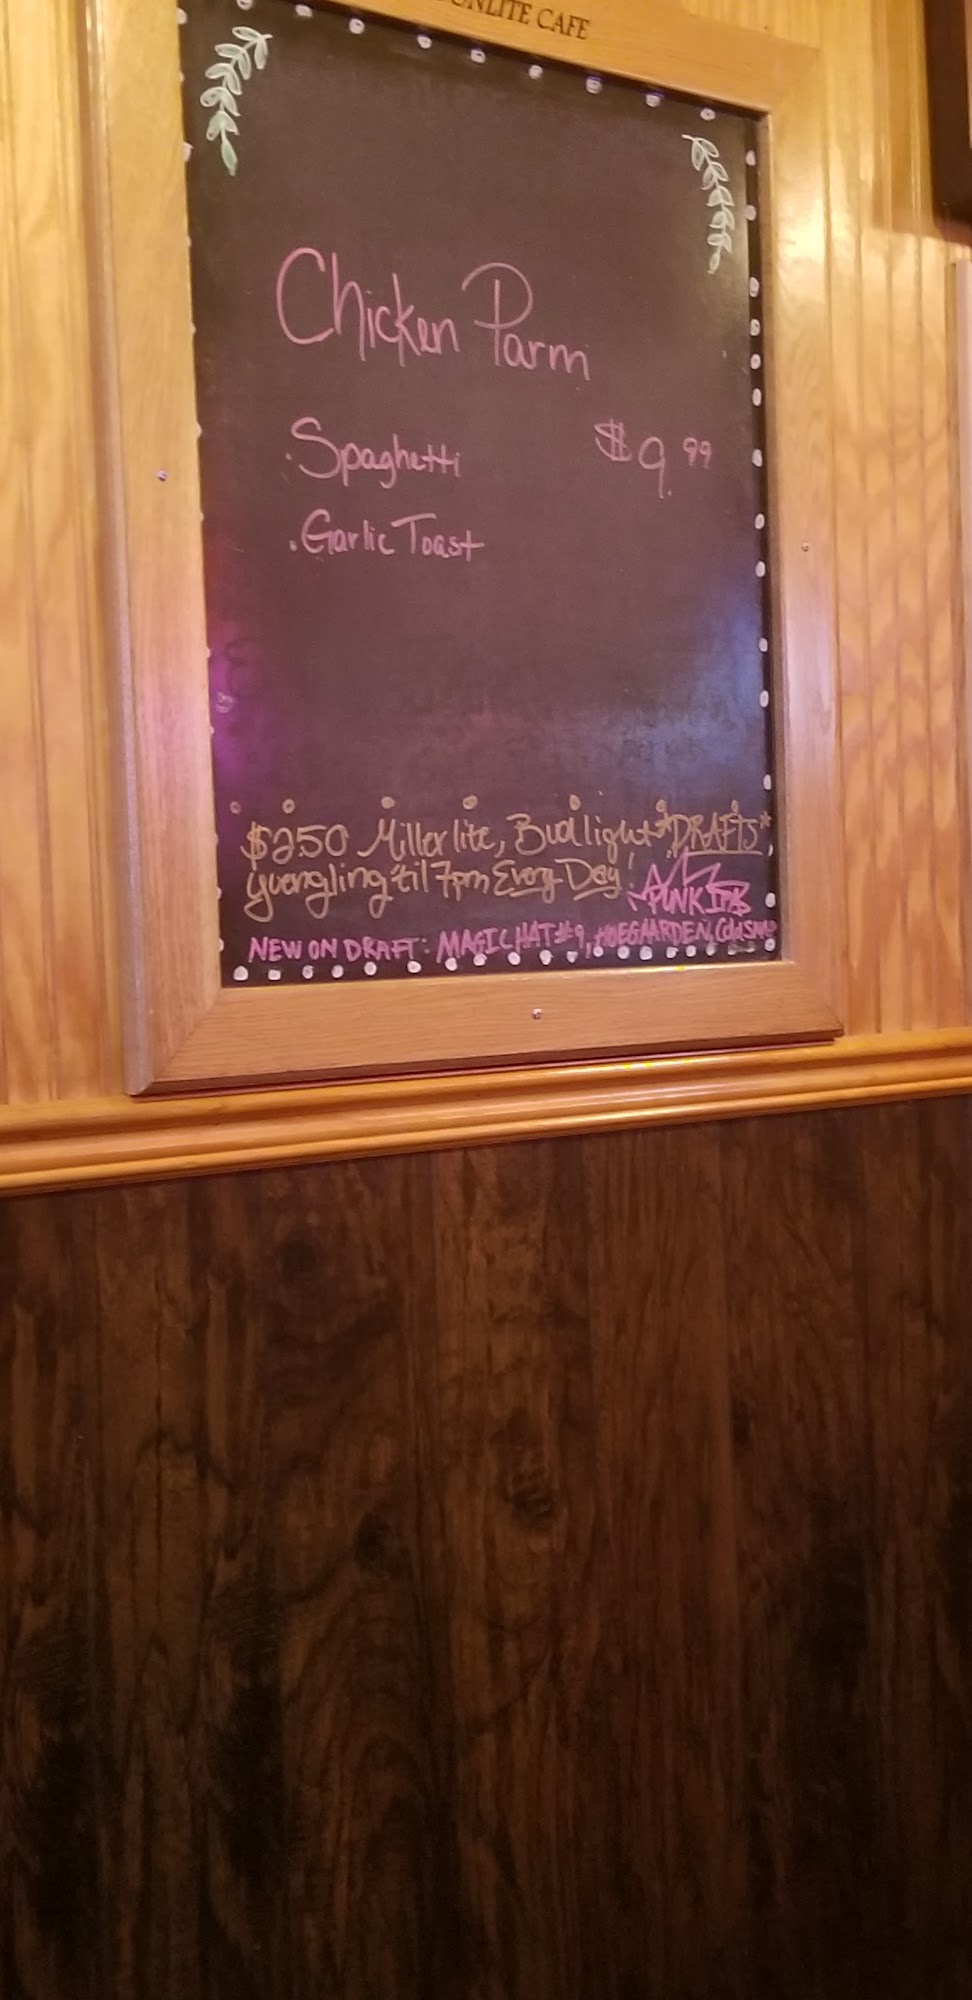 ONLITE CAFE
Chicken Parm
. Spaghetti $9.99
. Garlic Toast
$2.50 Miller lite, Bud light *DRAFTS*
yuengling 'til 7pm Every Day!
PUNK IPA
NEW ON DRAFT: MAGIC HAT #9, HOEGAARDEN,